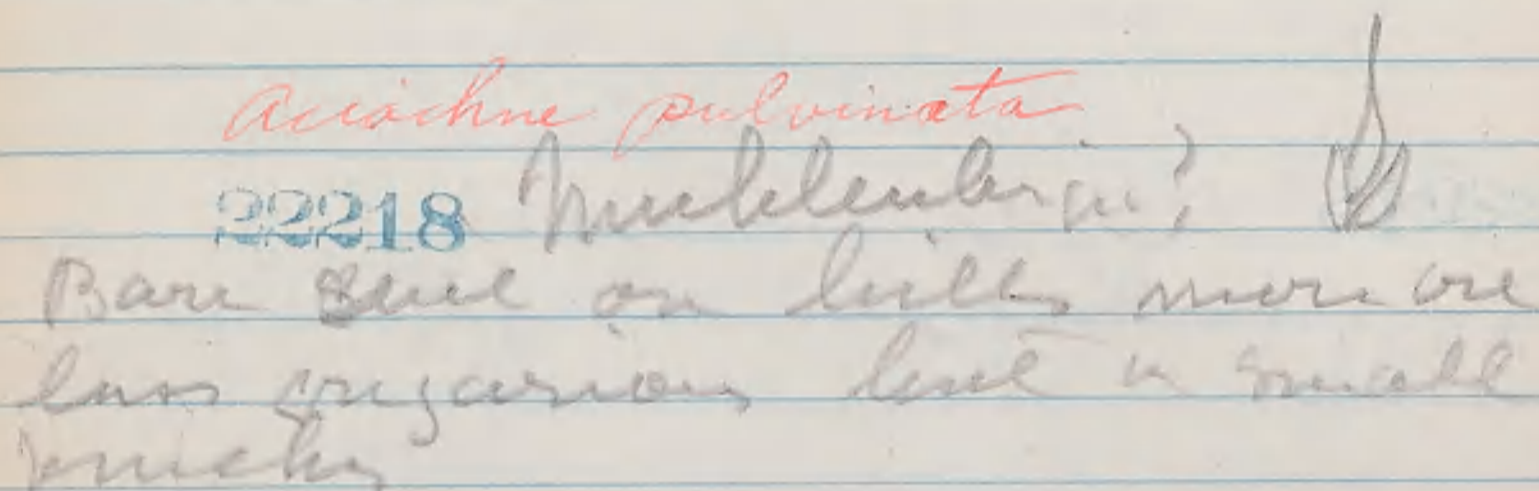 Aciachne pulvinata
22218 Muhlenbergia?
Bare soil on hills more or
less gregarious but in small
bunches